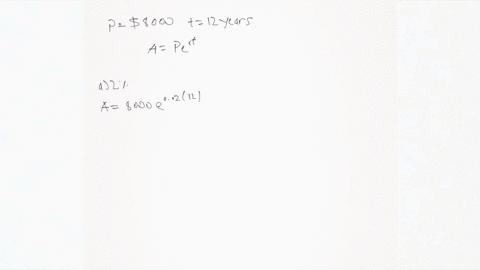 P = $8000 t = 12 years
A = Pe^rt
a) 2%
A = 8000 e^0.02(12)